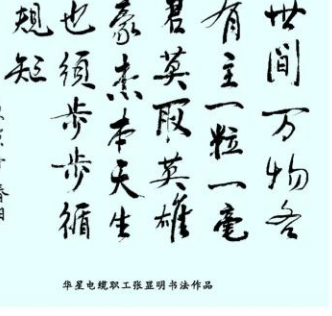 世間万物各
有主一粒一毫
君莫取英雄
豪杰本天生
也須步步循
規矩
春日
华星电缆职工张显明书法作品